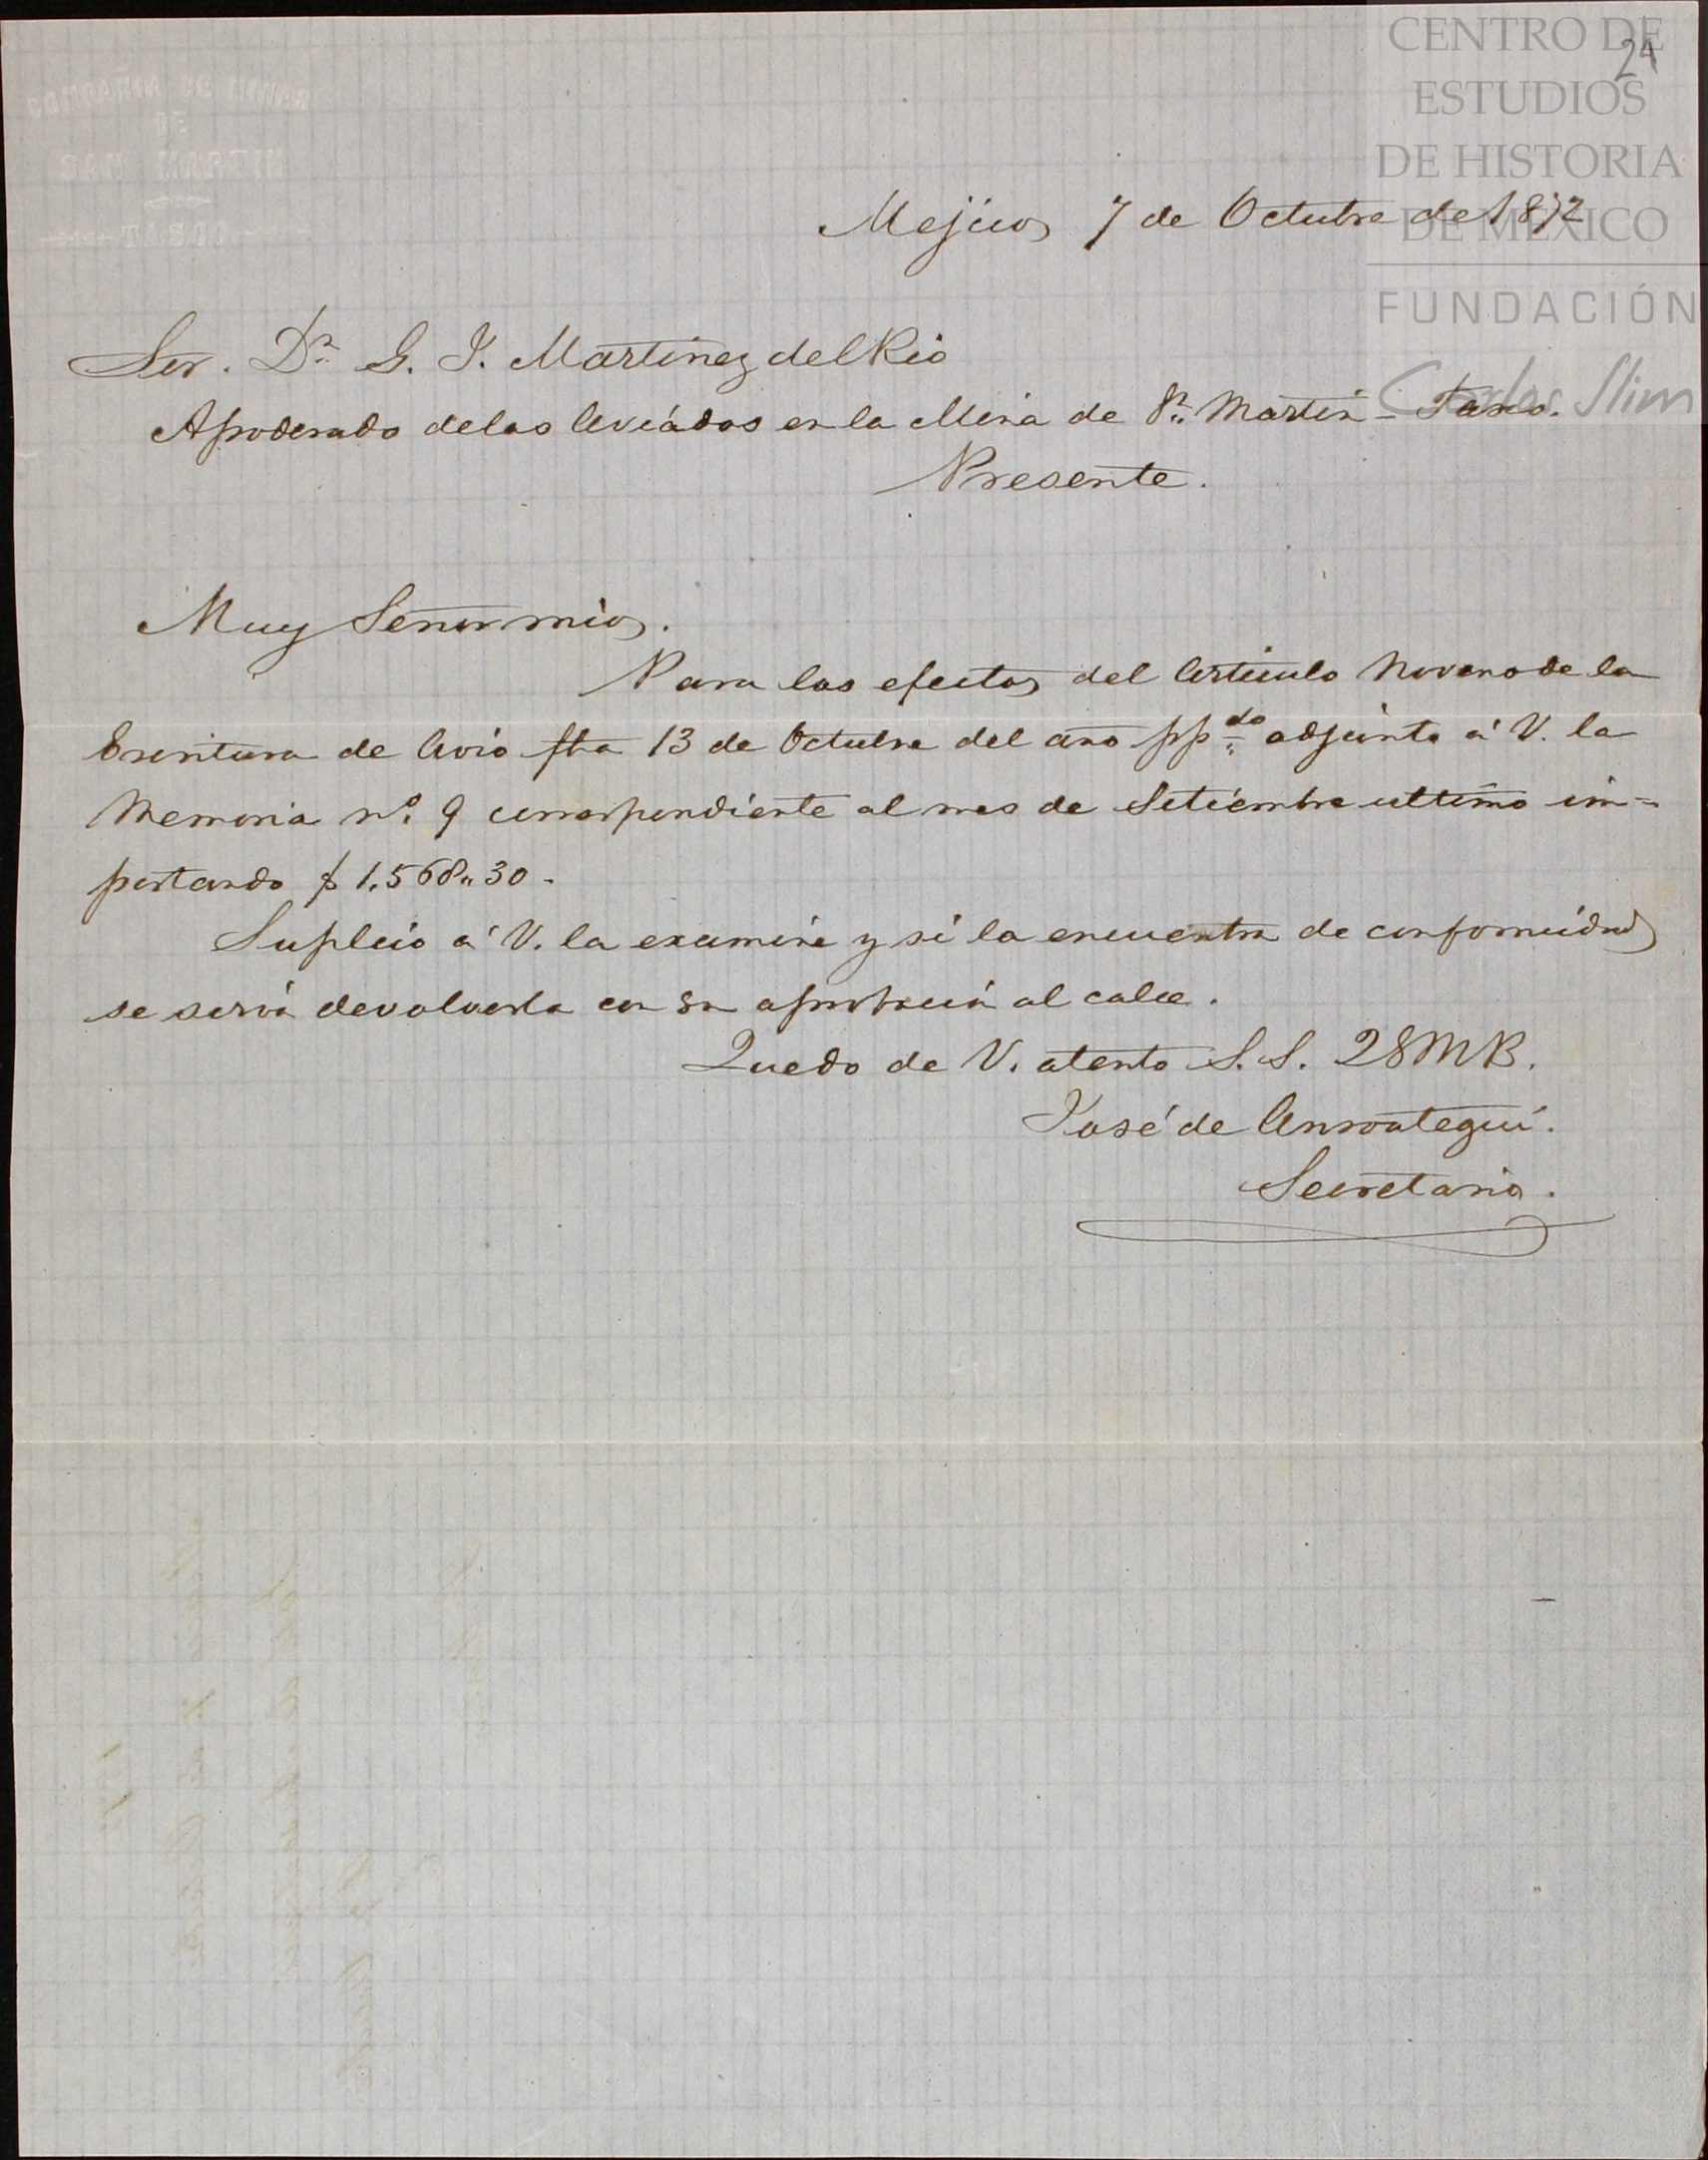 CENTRO DE
ESTUDIOS
DE HISTORIA
DE MÉXICO
FUNDACIÓN
Carlos Slim
24
Mejico, 7 de Octubre de 1872
Sor. Dn. G. I. Martinez del Rio
Apoderado de los Aviados en la Mina de Sn. Martin - Tasco.
Presente.
Muy Señor mio,.
Para los efectos del Articulo Noveno de la
Escritura de Avio fha 13 de Octubre del año ppdo. adjunto á V. la
Memoria no. 9 correspondiente al mes de Setiembre ultimo im=
portando $ 1.568,,30.
Suplico á V. la examine y si la encuentra de conformidad
se serva devolverla con su aprobacion al calce.
Quedo de V. atento S. S. 2SMB.
José de Ansoategui.
Secretario.